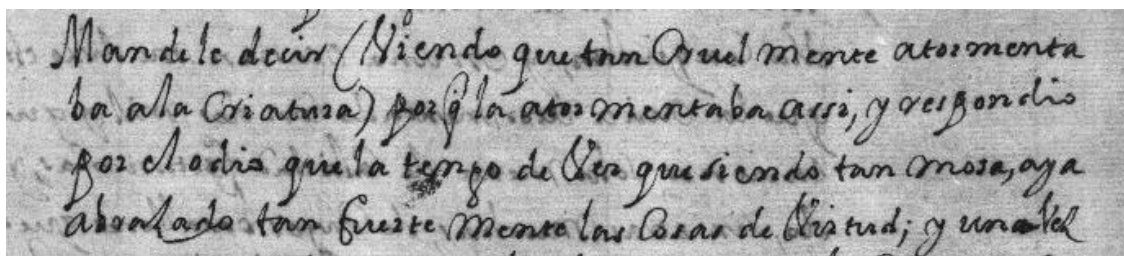 Mandele decir (Viendo que tan Cruel mente atormenta
ba ala Criatura) por q̃ la atormentaba assi, y respondio
por el odio que la tengo de Ver que siendo tan mosa, aya
abrasado tan fuerte mente las Cosas de Virtud; y una Vez